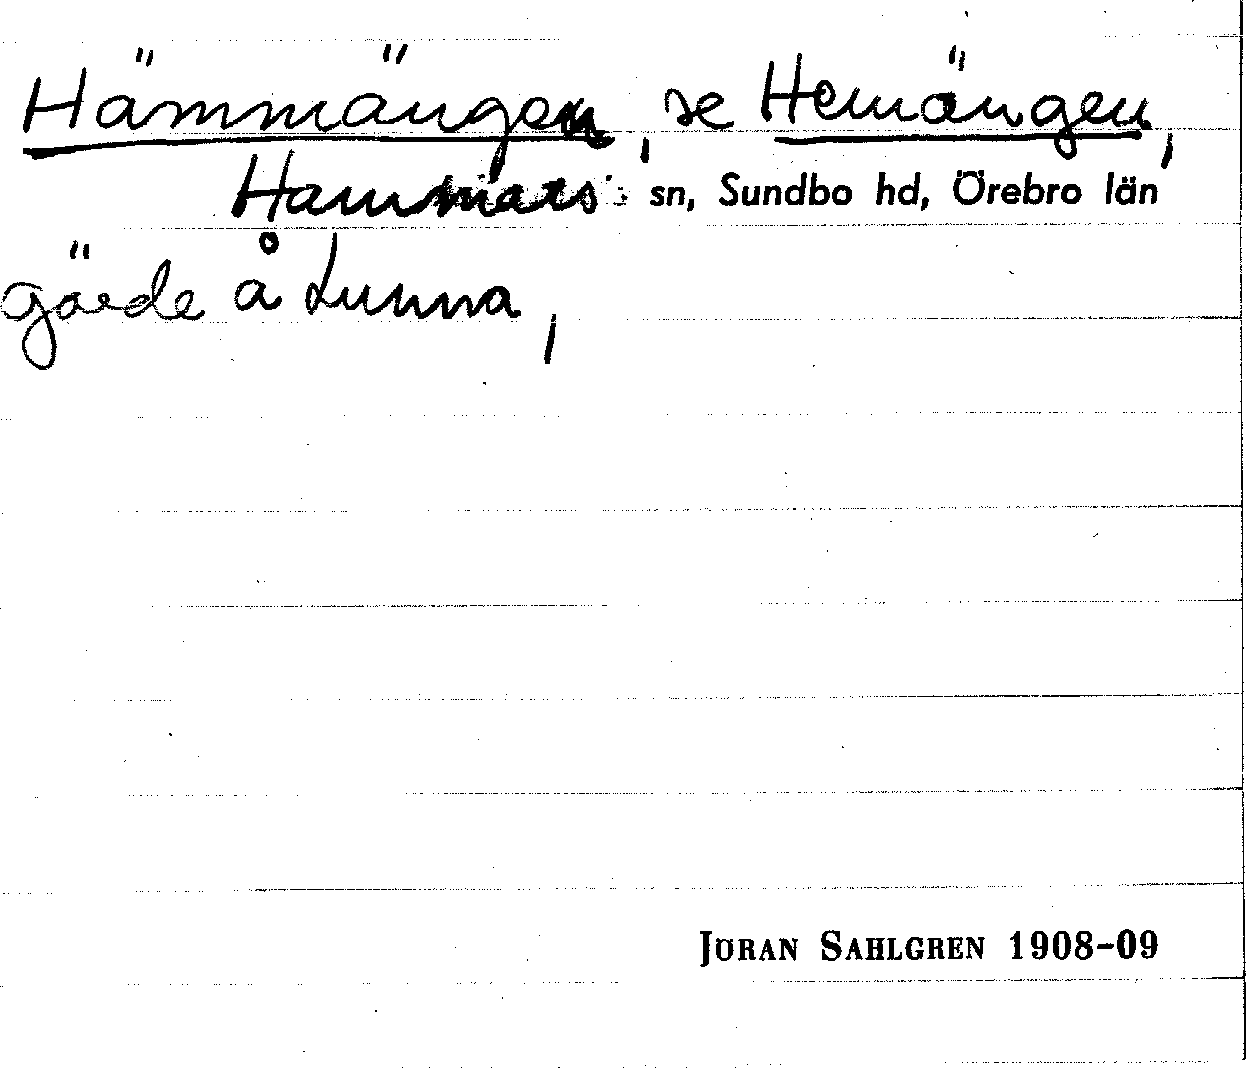 Hämmängen, se Hemängen,
Hammars sn, Sundbo hd, Örebro län
gärde å Lunna,
JÖRAN SAHLGREN 1908-09